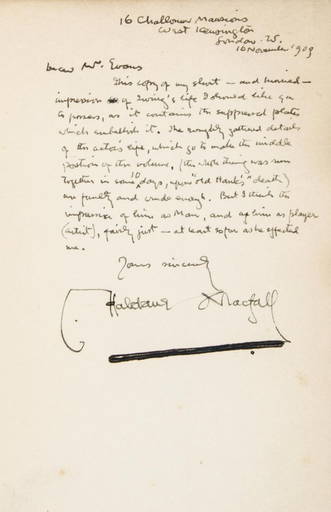 16 Challoner Mansions
West Kensington
London. W.
10 November '09
Dear Mr. Evans
This copy of my short — and hurried —
impression of Irving's life I should like you
to possess, as it contains the suppressed plates
which embellish it. The roughly gathered details
of the actor's life, which go to make the middle
portion of the volume, (the whole thing was run
together in some 10 days, upon "old Hank's" death)
are faulty and crude enough. But I think the
impression of him as Man, and of him as player
(artist), fairly just — at least so far as he affected
me.
Yours sincerely
Haldane Macfall